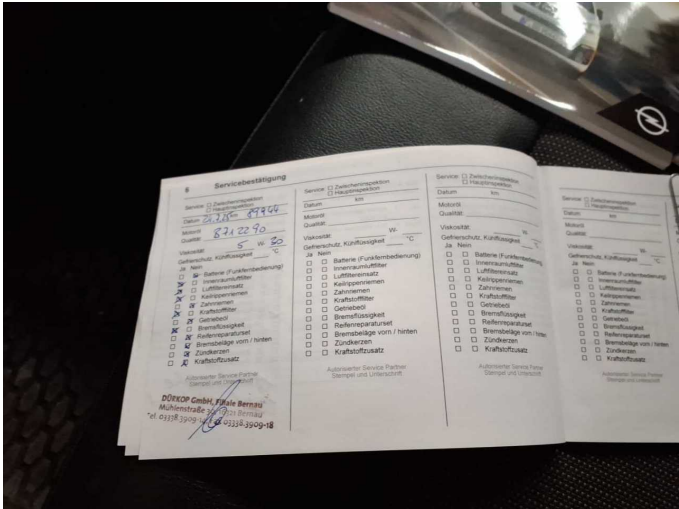 6 Servicebestätigung
Service: ☐ Zwischeninspektion
☐ Hauptinspektion
Datum km 89944
Motoröl
Qualität: B712290
Viskosität: 5 W- 30
Gefrierschutz, Kühlflüssigkeit °C
Ja Nein
Batterie (Funkfernbedienung)
Innenraumluftfilter
Luftfiltereinsatz
Keilrippenriemen
Zahnriemen
Kraftstofffilter
Getriebeöl
Bremsflüssigkeit
Reifenreparaturset
Bremsbeläge vorn / hinten
Zündkerzen
Kraftstoffzusatz
Autorisierter Service Partner
Stempel und Unterschrift
DÜRKOP GmbH, Filiale Bernau
Mühlenstraße Bernau
Tel. 03338.3909- 03338.3909-18
Service: ☐ Zwischeninspektion
☐ Hauptinspektion
Datum km
Motoröl
Qualität:
Viskosität: W-
Gefrierschutz, Kühlflüssigkeit °C
Ja Nein
☐ ☐ Batterie (Funkfernbedienung)
☐ ☐ Innenraumluftfilter
☐ ☐ Luftfiltereinsatz
☐ ☐ Keilrippenriemen
☐ ☐ Zahnriemen
☐ ☐ Kraftstofffilter
☐ ☐ Getriebeöl
☐ ☐ Bremsflüssigkeit
☐ ☐ Reifenreparaturset
☐ ☐ Bremsbeläge vorn / hinten
☐ ☐ Zündkerzen
☐ ☐ Kraftstoffzusatz
Autorisierter Service Partner
Stempel und Unterschrift
Service: ☐ Zwischeninspektion
☐ Hauptinspektion
Datum km
Motoröl
Qualität:
Viskosität: W-
Gefrierschutz, Kühlflüssigkeit °C
Ja Nein
☐ ☐ Batterie (Funkfernbedienung)
☐ ☐ Innenraumluftfilter
☐ ☐ Luftfiltereinsatz
☐ ☐ Keilrippenriemen
☐ ☐ Zahnriemen
☐ ☐ Kraftstofffilter
☐ ☐ Getriebeöl
☐ ☐ Bremsflüssigkeit
☐ ☐ Reifenreparaturset
☐ ☐ Bremsbeläge vorn / hinten
☐ ☐ Zündkerzen
☐ ☐ Kraftstoffzusatz
Autorisierter Service Partner
Stempel und Unterschrift
Service: ☐ Zwischeninspektion
☐ Hauptinspektion
Datum km
Motoröl
Qualität:
Viskosität: W-
Gefrierschutz, Kühlflüssigkeit °C
Ja Nein
☐ ☐ Batterie (Funkfernbedienung)
☐ ☐ Innenraumluftfilter
☐ ☐ Luftfiltereinsatz
☐ ☐ Keilrippenriemen
☐ ☐ Zahnriemen
☐ ☐ Kraftstofffilter
☐ ☐ Getriebeöl
☐ ☐ Bremsflüssigkeit
☐ ☐ Reifenreparaturset
☐ ☐ Bremsbeläge vorn / hinten
☐ ☐ Zündkerzen
☐ ☐ Kraftstoffzusatz
Autorisierter Service Partner
Stempel und Unterschrift